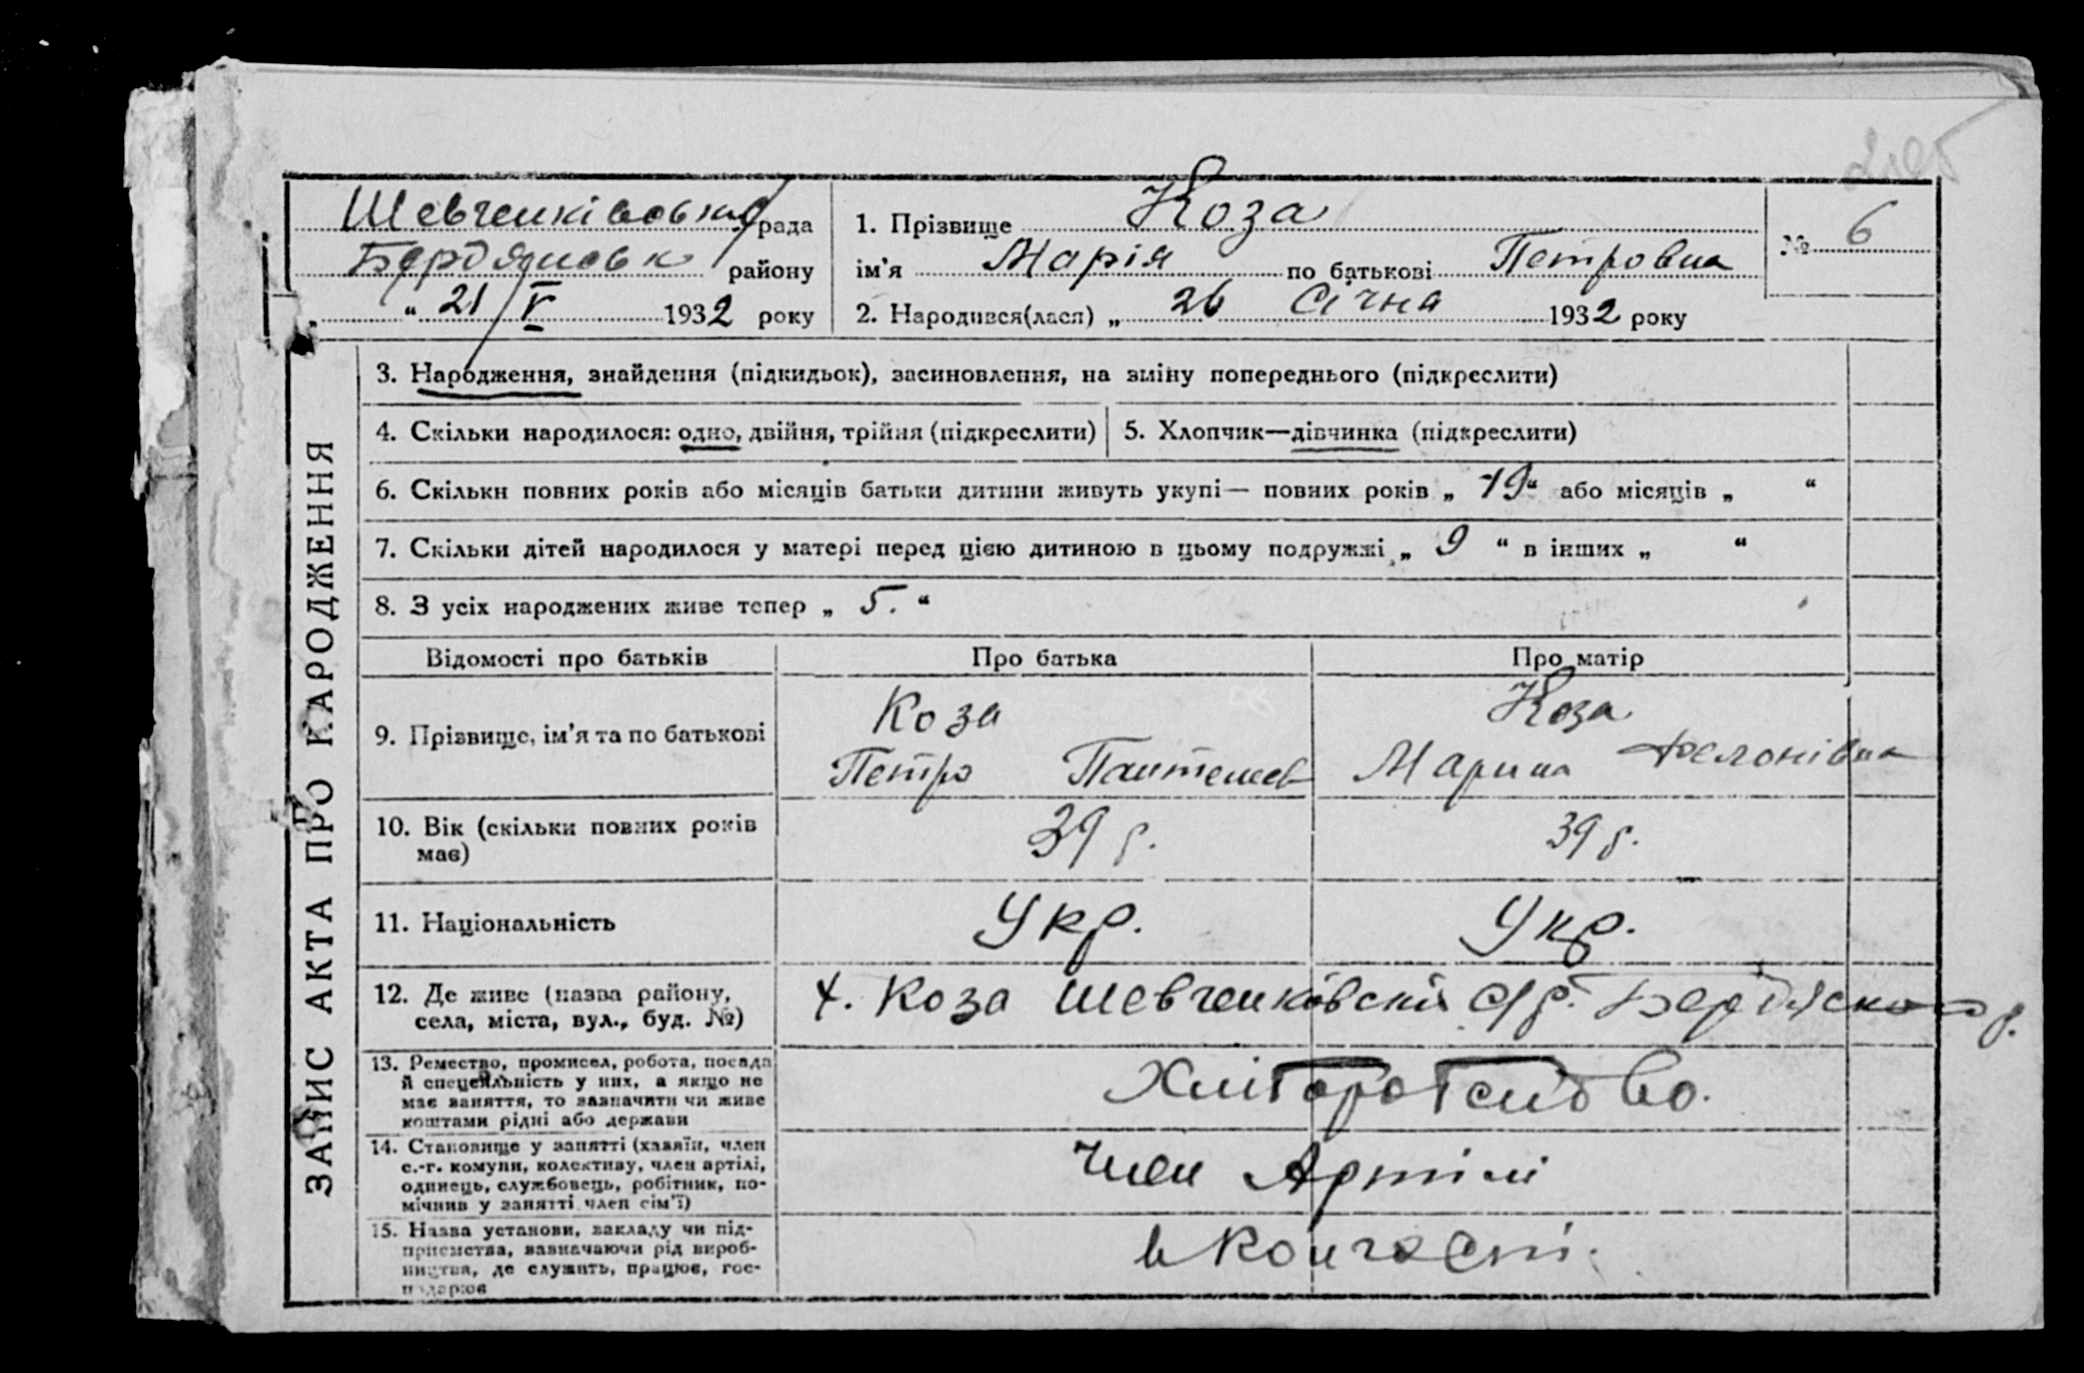 Шевченківська рада
Бердянськ району
„ “ 21/V 1932 року
1. Прізвище Коза
ім’я Марія по батькові Петровна
2. Народився(лася) „ 26 Січня 1932 року
№ 6
ЗАПИС АКТА ПРО НАРОДЖЕННЯ
3. Народження, знайдення (підкидьок), засиновлення, на зміну попереднього (підкреслити)
4. Скільки народилося: одно, двійня, трійня (підкреслити)
5. Хлопчик—дівчинка (підкреслити)
6. Скільки повних років або місяців батьки дитини живуть укупі— повних років „ 19 “ або місяців „ “
7. Скільки дітей народилося у матері перед цією дитиною в цьому подружжі „ 9 “ в інших „ “
8. З усіх народжених живе тепер „ 5. “
Відомості про батьків
Про батька
Про матір
9. Прізвище, ім’я та по батькові
Коза
Петро
Коза
Марина
10. Вік (скільки повних років
має)
39 р.
39 р.
11. Національність
Укр.
Укр.
12. Де живе (назва району,
села, міста, вул., буд. №)
Коза Шевченківскої с/р. Бердянского р.
13. Ремество, промисел, робота, посада
й спеціяльність у них, а якщо не
має заняття, то зазначити чи живе
коштами рідні або держави
Хліборобство.
14. Становище у занятті (хазяїн, член
с.-г. комуни, колективу, член артілі,
одинець, службовець, робітник, по-
мічник у занятті член сім’ї)
Член Артілі
15. Назва установи, закладу чи під-
приємства, зазначаючи рід вироб-
ництва, де служить, працює, гос-
подарює